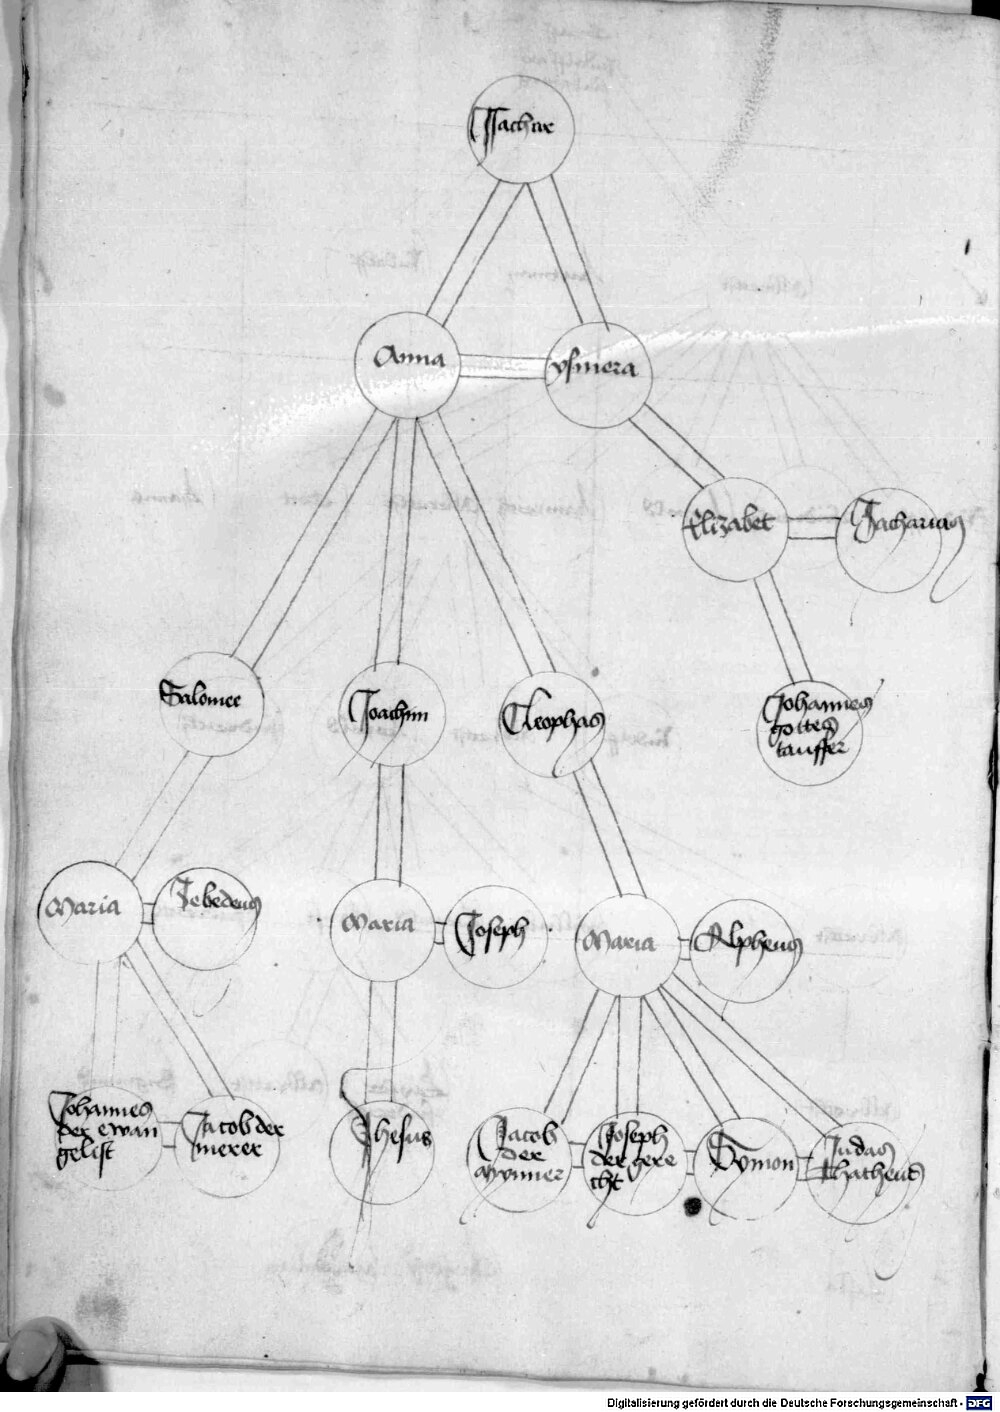 Anna
ysmera
Elizabet
Zacharias
Salomee
Joachim
Cleophas
Johannes
gottes
tauffer
Maria
Zebedeus
Maria
Joseph
Maria
Alpheus
Johannes
der ewan
gelist
Jacob der
merer
Jhesus
Jacob
der
mynner
Joseph
der gere
cht
Symon
Judas
thatheus
Digitalisierung gefördert durch die Deutsche Forschungsgemeinschaft - DFG